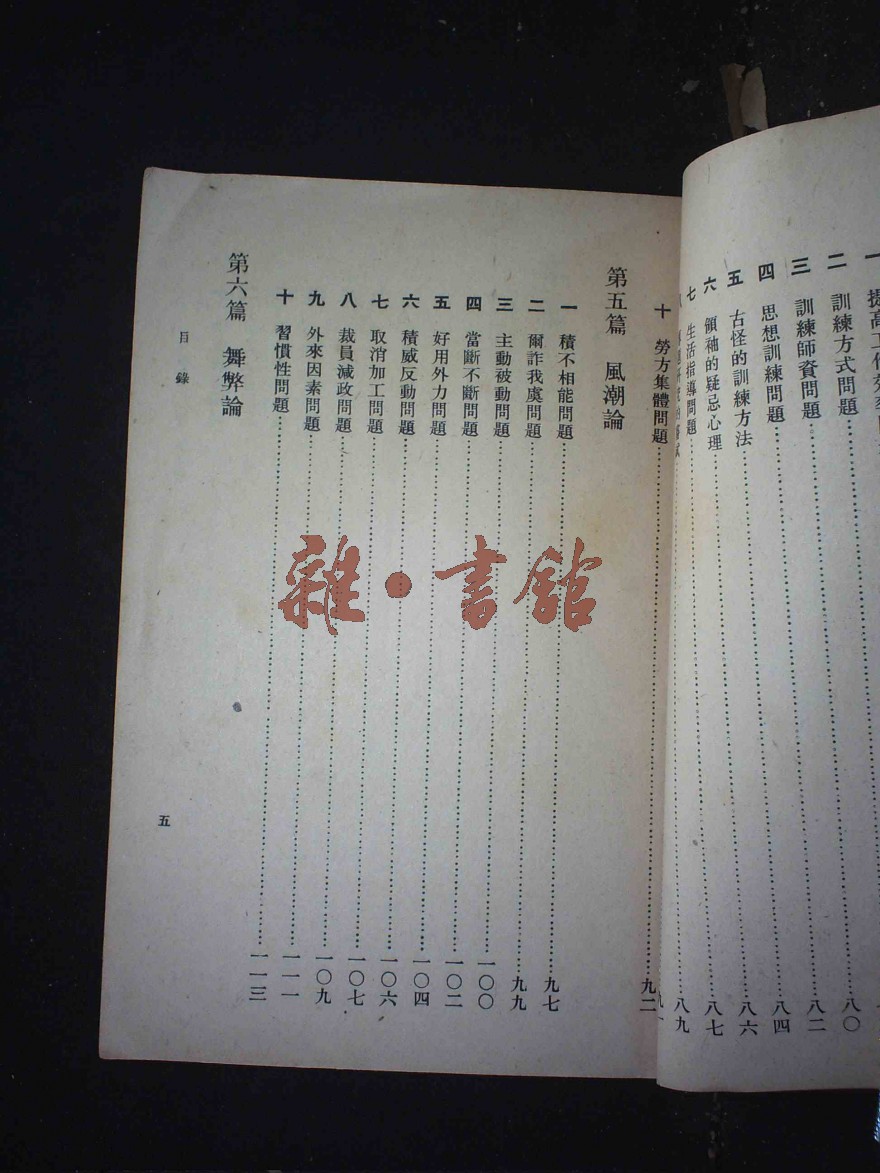 一 提高工作
二 訓練方式問題……八〇
三 訓練師資問題……八二
四 思想訓練問題……八四
五 古怪的訓練方法……八六
六 領袖的疑忌心理……八七
七 生活指導問題……八九
十 勞方集體問題……九二
第五篇 風潮論
一 積不相能問題……九七
二 爾詐我虞問題……九九
三 主動被動問題……一〇〇
四 當斷不斷問題……一〇二
五 好用外力問題……一〇四
六 積威反動問題……一〇六
七 取消加工問題……一〇七
八 裁員減政問題……一〇九
九 外來因素問題……一一一
十 習慣性問題……一一三
第六篇 舞弊論
目錄
五
雜·書館